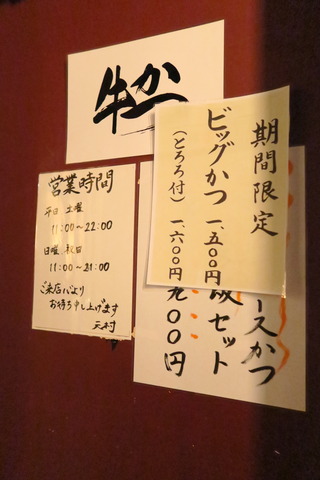 牛かつ
期間限定
ビッグかつ 一、五〇〇円
(とろろ付) 一、六〇〇円
ースかつ
飯セット
九〇〇円
営業時間
平日 土曜
11:00～22:00
日曜、祝日
11:00～21:00
ご来店心より
お待ち申し上げます
天村